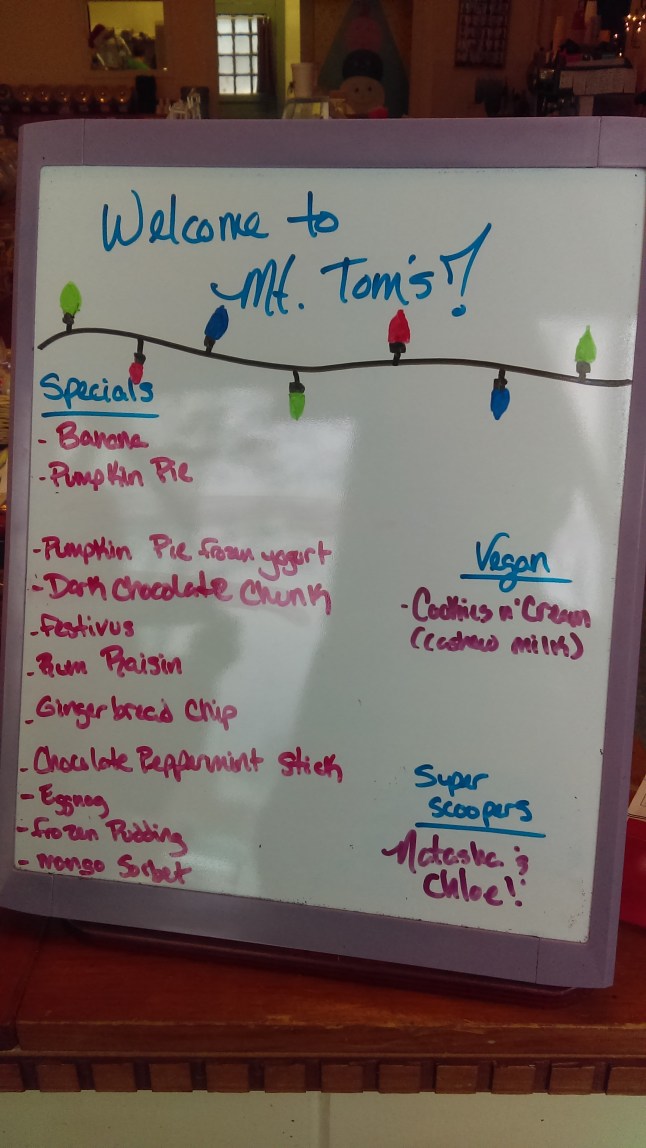 Welcome to
Mt. Tom's!
Specials
- Banana
- Pumpkin Pie
- Pumpkin Pie frozen yogurt
- Dark Chocolate Chunk
- Festivus
- Rum Raisin
- Gingerbread Chip
- Chocolate Peppermint Stick
- Eggnog
- Frozen Pudding
- Mango Sorbet
Vegan
- Cookies n' Cream
(cashew milk)
Super
Scoopers
Natasha &
Chloe!